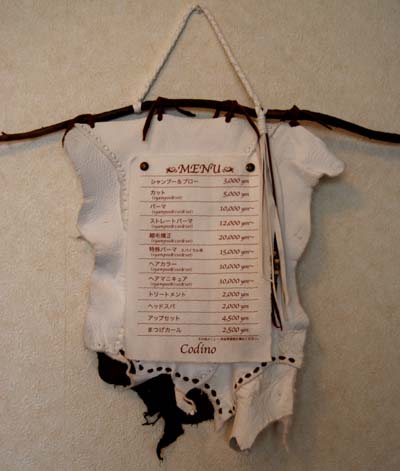 MENU
シャンプー&ブロー 3,000 yen
カット 5,000 yen
パーマ 10,000 yen~
ストレートパーマ 12,000 yen~
縮毛矯正 20,000 yen~
特殊パーマ 15,000 yen~
ヘアカラー 10,000 yen~
ヘアマニキュア 10,000 yen~
トリートメント 2,000 yen
ヘッドスパ 2,000 yen
アップセット 4,500 yen
まつげカール 2,500 yen
Codino